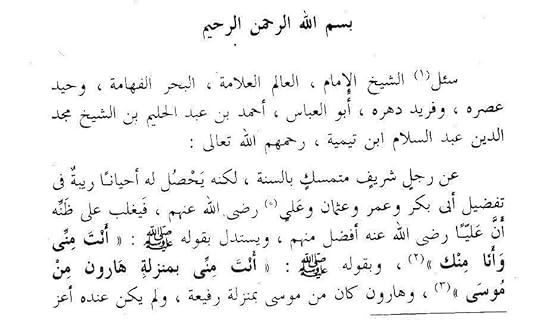 بسم الله الرحمن الرحيم
سئل(١) الشيخ الإمام ، العالم العلامة ، البحر الفهامة ، وحيد
عصره ، وفريد دهره ، أبو العباس ، أحمد بن عبد الحليم بن الشيخ مجد
الدين عبد السلام ابن تيمية ، رحمهم الله تعالى :
عن رجلٍ شريفٍ متمسكٍ بالسنة ، لكنه يَحْصُل له أحيانًا ريبةٌ فى
تفضيل أبى بكر وعمر وعثمان وعَلي(*) رضى الله عنهم ، فيغلب على ظَنِّه
أَنَّ عَليًّا رضى الله عنه أفضل منهم ، ويستدل بقوله ﷺ : « أَنْتَ مِنِّى
وَأَنَا مِنْك »(٢) ، وبقوله ﷺ : « أَنْتَ مِنِّى بمنزلةِ هَارون مِنْ
مُوسَى »(٣) ، وهارون كان من موسى بمنزلة رفيعة ، ولم يكن عنده أعز